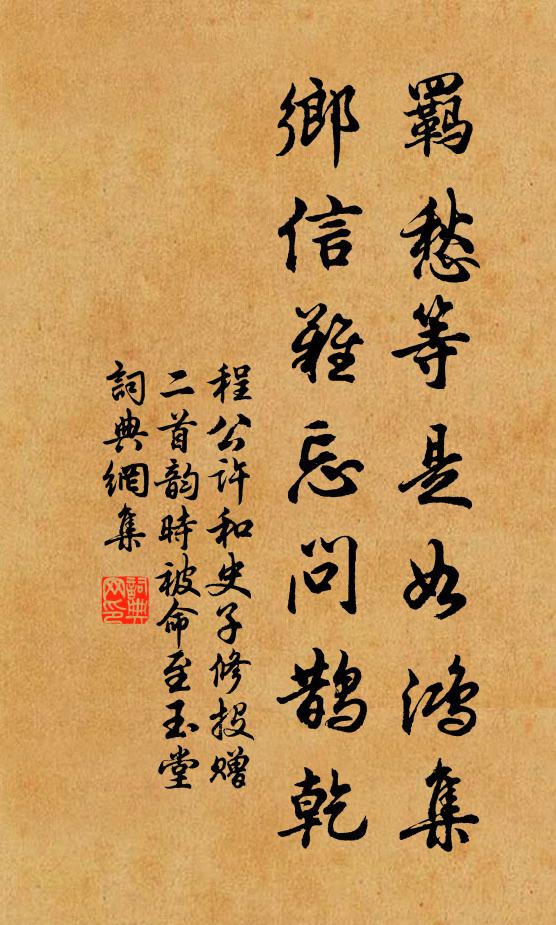 羈愁等是如鴻集
鄉信難忘問鵲乾
程公許和史子修投贈
二首韵時被命至玉堂
詞典網集
詞典網印